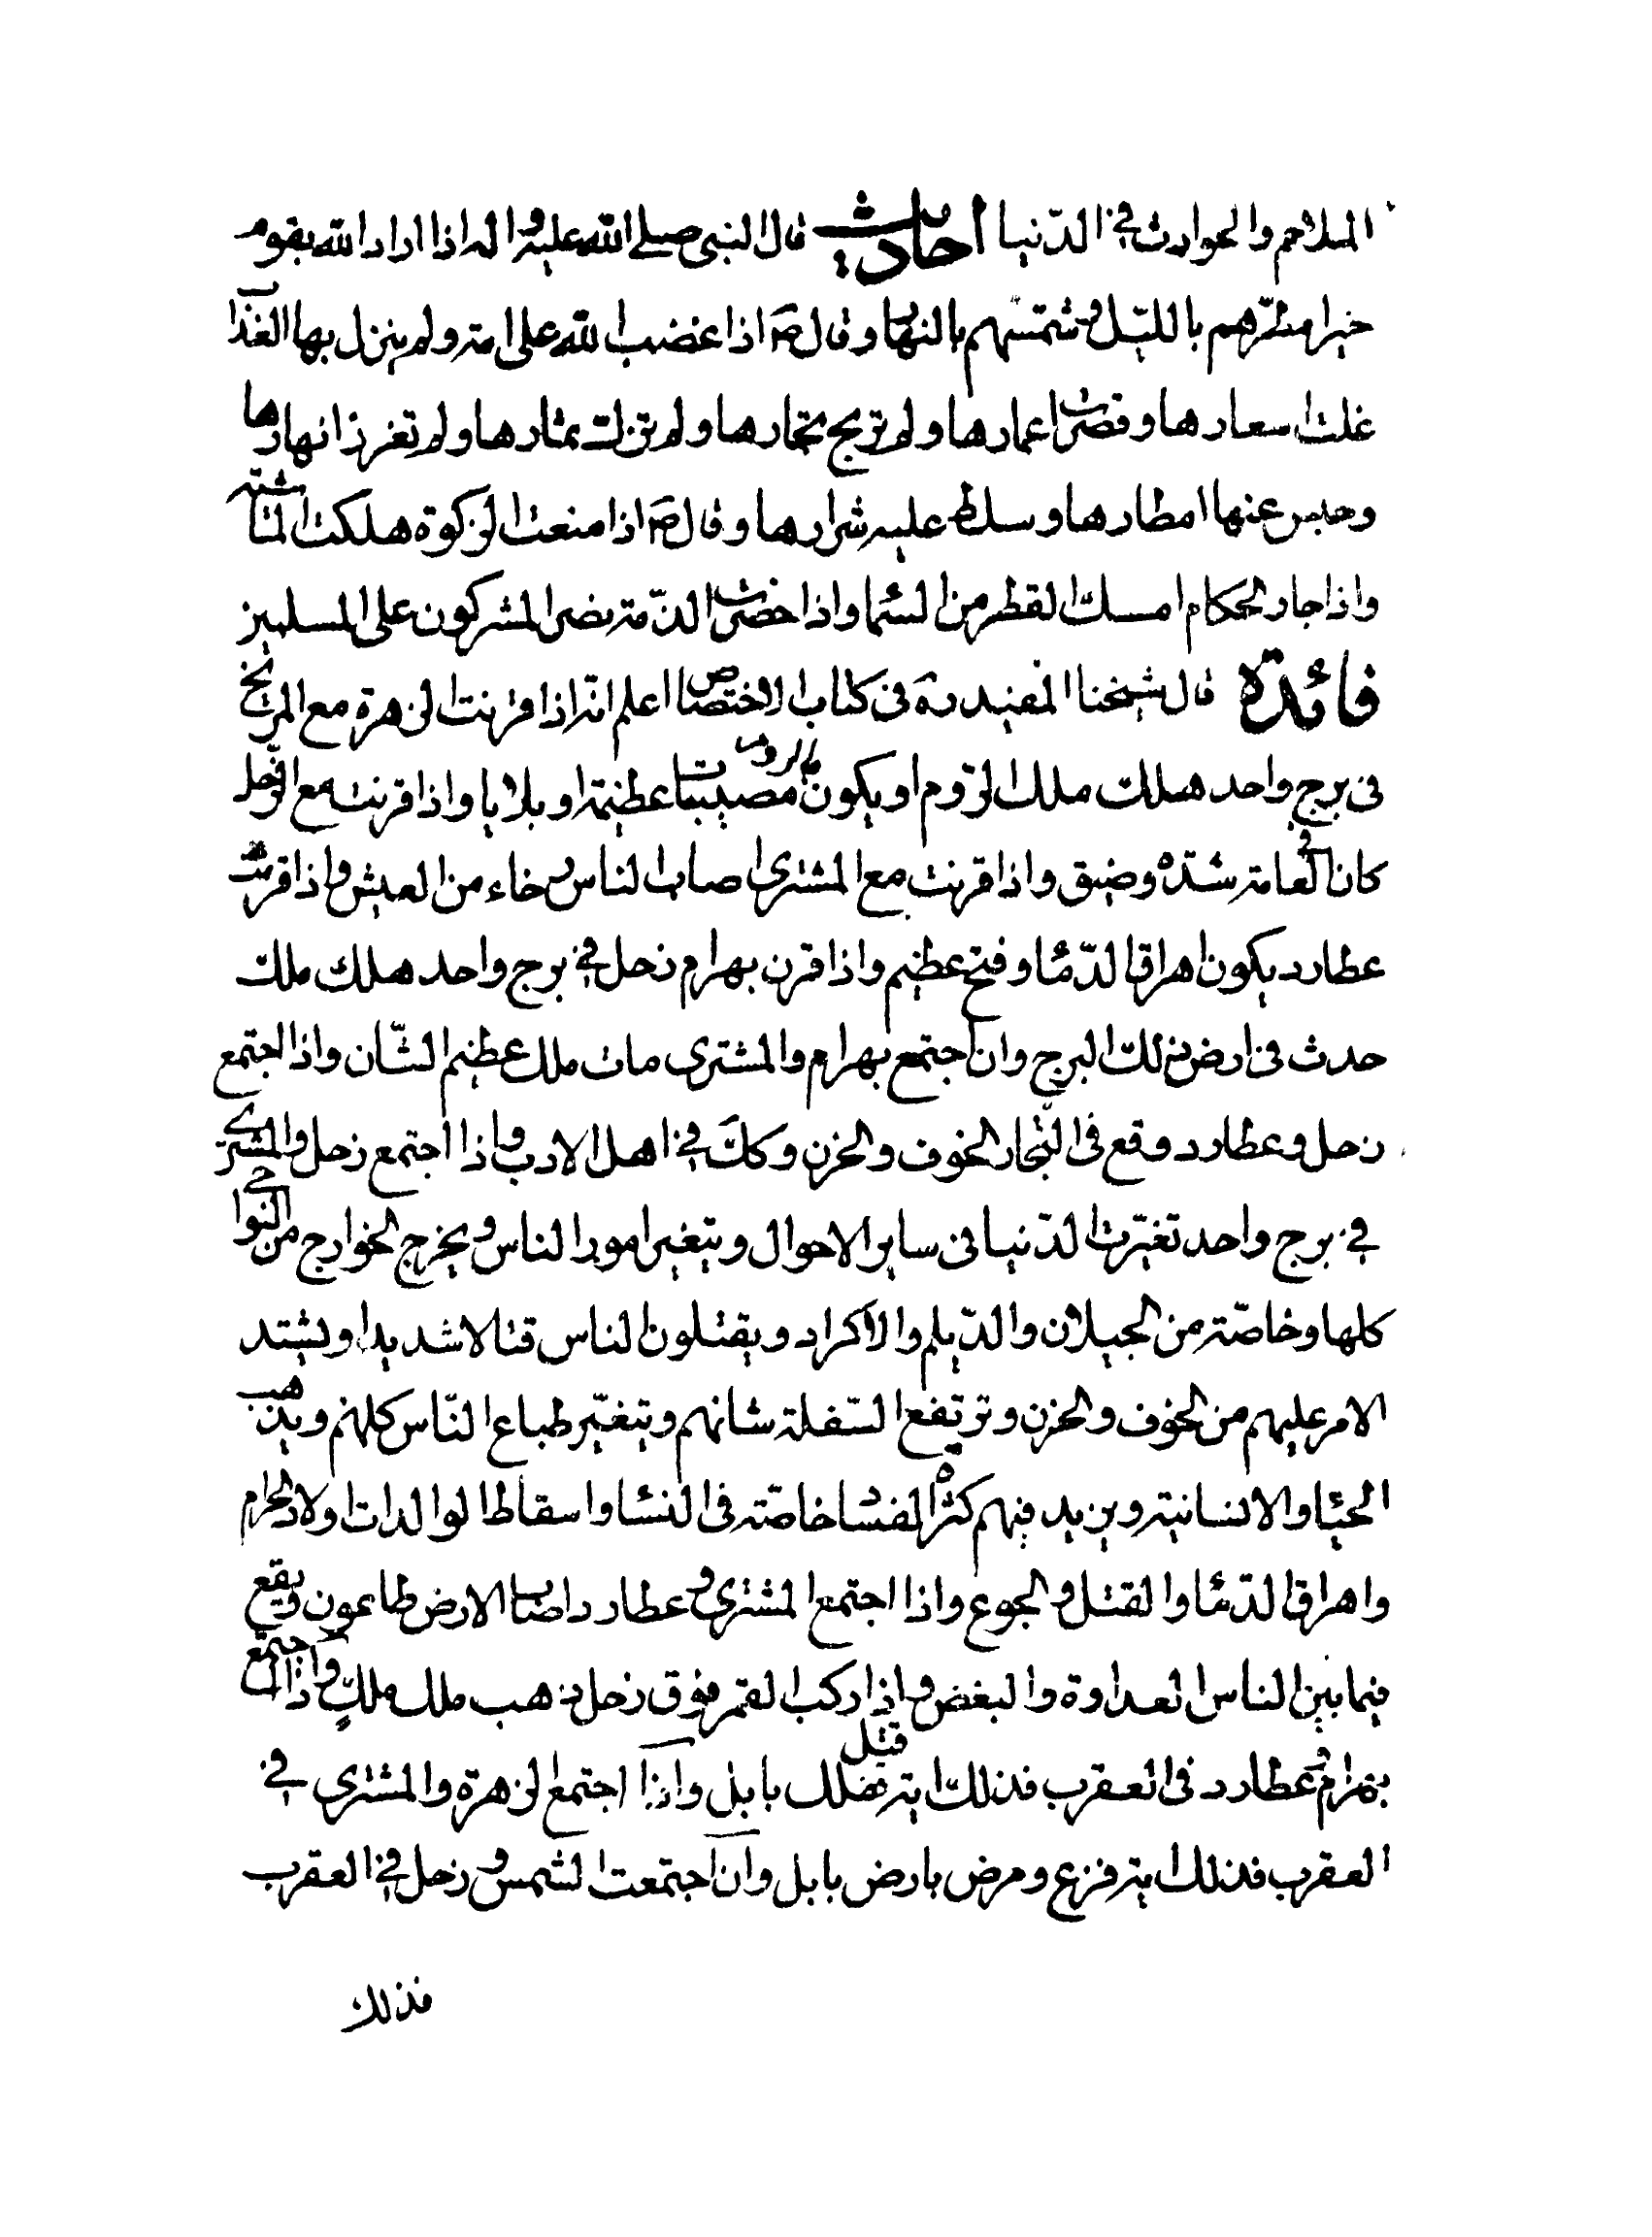 الملاحم والحوادث في الدّنيا احاديث قال النبى صلى الله عليه واله اذا اراد الله بقوم
خيرا مطّرهم بالليّل وشمّسهم بالنهار وقال ص اذا غضب الله على امة ولم ينزل بها العذاب
غلت اسعارها وقصرت اعمارها ولم تربح تجارها ولم تزك ثمارها ولم تغزر انهارها
وحبس عنها امطارها وسلط عليه شرارها وقال ص اذا منعت الزكوة هلكت الماشية
واذا جار الحكام امسك القطر من السماء واذا خضرت الذّمة نصر المشركون على المسلمين
فائدة قال شيخنا المفيد ره فى كتاب الاختصاص اعلم انّه اذا قرنت الزهرة مع المريخ
فى برج واحد هلك ملك الرّوم او يكون بالروم مصيبات عظيمة او بلايا واذا قرنت مع الزّحل
كان في العامة شدّة وضيق واذا قرنت مع المشترى اصاب الناس رخاء من العيش واذا قرنت مع
عطارد يكون اهراق الدّماء وفتح عظيم واذا قرن بهرام زحل في برج واحد هلك ملك
حدث فى ارض ذلك البرج وان اجتمع بهرام والمشترى مات ملك عظيم الشّان واذا اجتمع
زحل وعطارد وقع فى التّجار الخوف والحزن وكك في اهل الادب واذا اجتمع زحل والمشترى
في برج واحد تغيّرت الدّنيا فى ساير الاحوال ويتغير امور الناس ويخرج الخوارج من النواحى
كلها وخاصّة من الجيلان والدّيلم والاكراد ويقتلون الناس قتالا شديدا ويشتد
الامر عليهم من الخوف والحزن وترتفع السّفلة شانهم ويتغيّر طباع النّاس كلهم ويذهب
الحياء والانسانية ويزيد فيهم كثرة الفساد خاصّة فى النساء واسقاط الوالدات اولاد الحرام
واهراق الدّماء والقتل والجوع واذا اجتمع المشترى وعطارد اصاب الارض طاعون ويقع
فيما بين الناس العداوة والبغض واذا ركب القمر فوق زحل ذهب ملك ملك واذا اجتمع
بهرام وعطارد فى العقرب فذلك اية قتل ملك بابل واذا اجتمع الزهرة والمشترى في
العقرب فذلك اية فزع ومرض بارض بابل وان اجتمعت الشمس وزحل في العقرب
فذلك